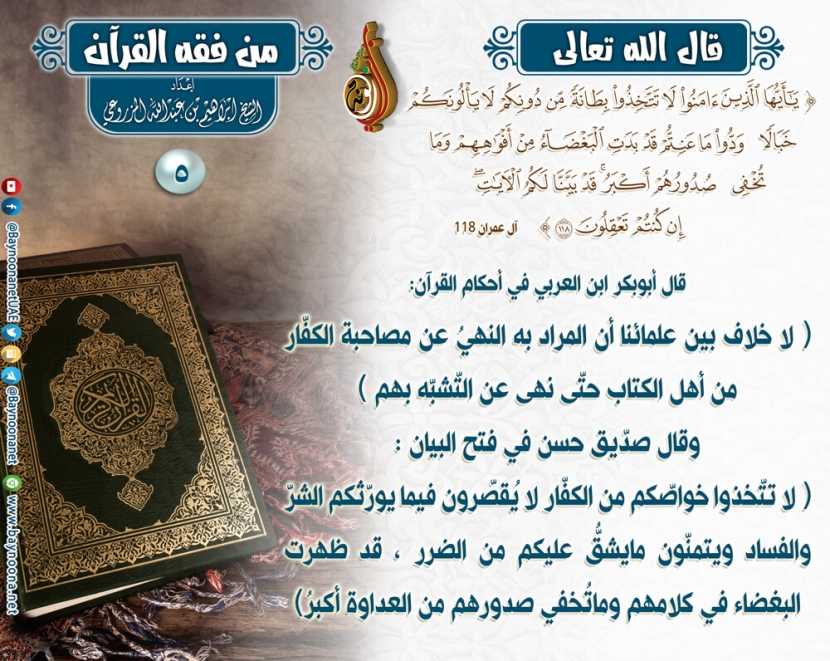 قال الله تعالى
﴿ يَٰٓأَيُّهَا ٱلَّذِينَ ءَامَنُوا۟ لَا تَتَّخِذُوا۟ بِطَانَةً مِّن دُونِكُمْ لَا يَأْلُونَكُمْ
خَبَالًا وَدُّوا۟ مَا عَنِتُّمْ قَدْ بَدَتِ ٱلْبَغْضَآءُ مِنْ أَفْوَٰهِهِمْ وَمَا
تُخْفِى صُدُورُهُمْ أَكْبَرُ ۚ قَدْ بَيَّنَّا لَكُمُ ٱلْءَايَٰتِ ۖ
إِن كُنتُمْ تَعْقِلُونَ ١١٨ ﴾ آل عمران 118
قال أبوبكر ابن العربي في أحكام القرآن:
( لا خلاف بين علمائنا أن المراد به النهيُ عن مصاحبة الكفّار
من أهل الكتاب حتّى نهى عن التّشبّه بهم )
وقال صدّيق حسن في فتح البيان :
( لا تتّخذوا خواصّكم من الكفّار لا يُقصّرون فيما يورّثكم الشرّ
والفساد ويتمنّون مايشقُّ عليكم من الضرر ، قد ظهرت
البغضاء في كلامهم وماتُخفي صدورهم من العداوة أكبرُ)
من فقه القرآن
إعداد
الشيخ إبراهيم بن عبدالله المزروعي
٥
القرآن الكريم
@BaynoonanetUAE
@Baynoonanet
www.baynoona.net